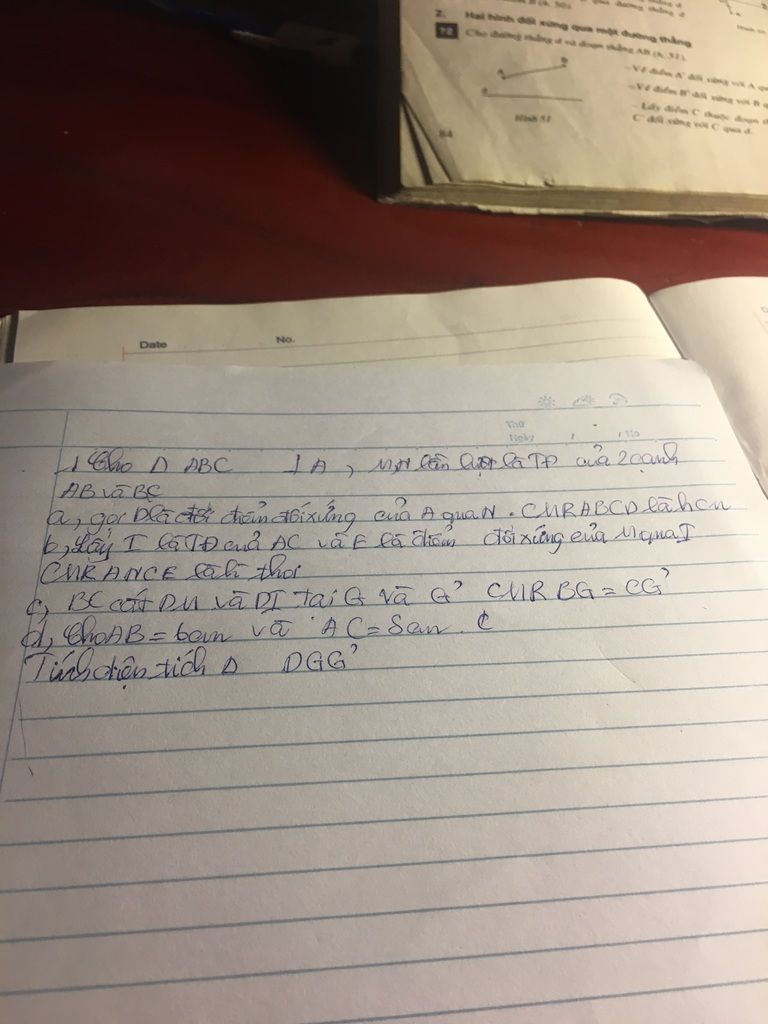 2. Hai hình đối xứng qua một đường thẳng
?2 Cho đường thẳng d và đoạn thẳng AB (h. 51).
- Vẽ điểm A' đối xứng với A qu
- Vẽ điểm B' đối xứng với B q
- Lấy điểm C thuộc đoạn th
C' đối xứng với C qua d.
Hình 51
84
Date No.
Thứ
Ngày / / No
1 Cho Δ ABC ⊥ A, M,N lần lượt là TĐ của 2 cạnh
AB và BC
a, gọi D là điểm đối xứng của A qua N. CMR ABCD là hcn
b, Lấy I là TĐ của AC và E là điểm đối xứng của M qua I
CMR ANCE là h thoi
c, BC cắt DM và DI tại G và G' CMR BG = CG'
d, Cho AB = 6cm và AC = 8cm.
Tính diện tích Δ DGG'